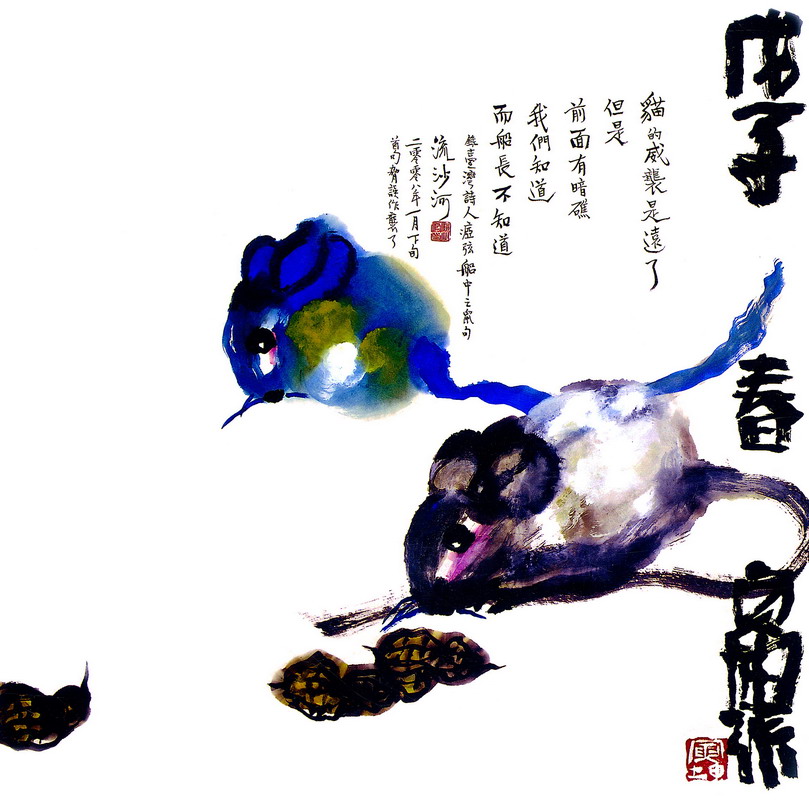 戊子 春 作
貓的威襲是遠了
但是
前面有暗礁
我們知道
而船長不知道
錄臺灣詩人瘂弦船中之鼠句
流沙河
二零零八年一月下旬
首句脅誤作襲了